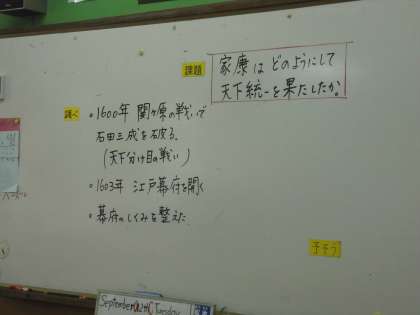 課題
家康はどのようにして
天下統一を果たしたか。
調べ
・1600年 関ヶ原の戦いで
石田三成を破る。
(天下分け目の戦い)
・1603年 江戸幕府を開く
・幕府のしくみを整えた
予そう
September 12th Tuesday